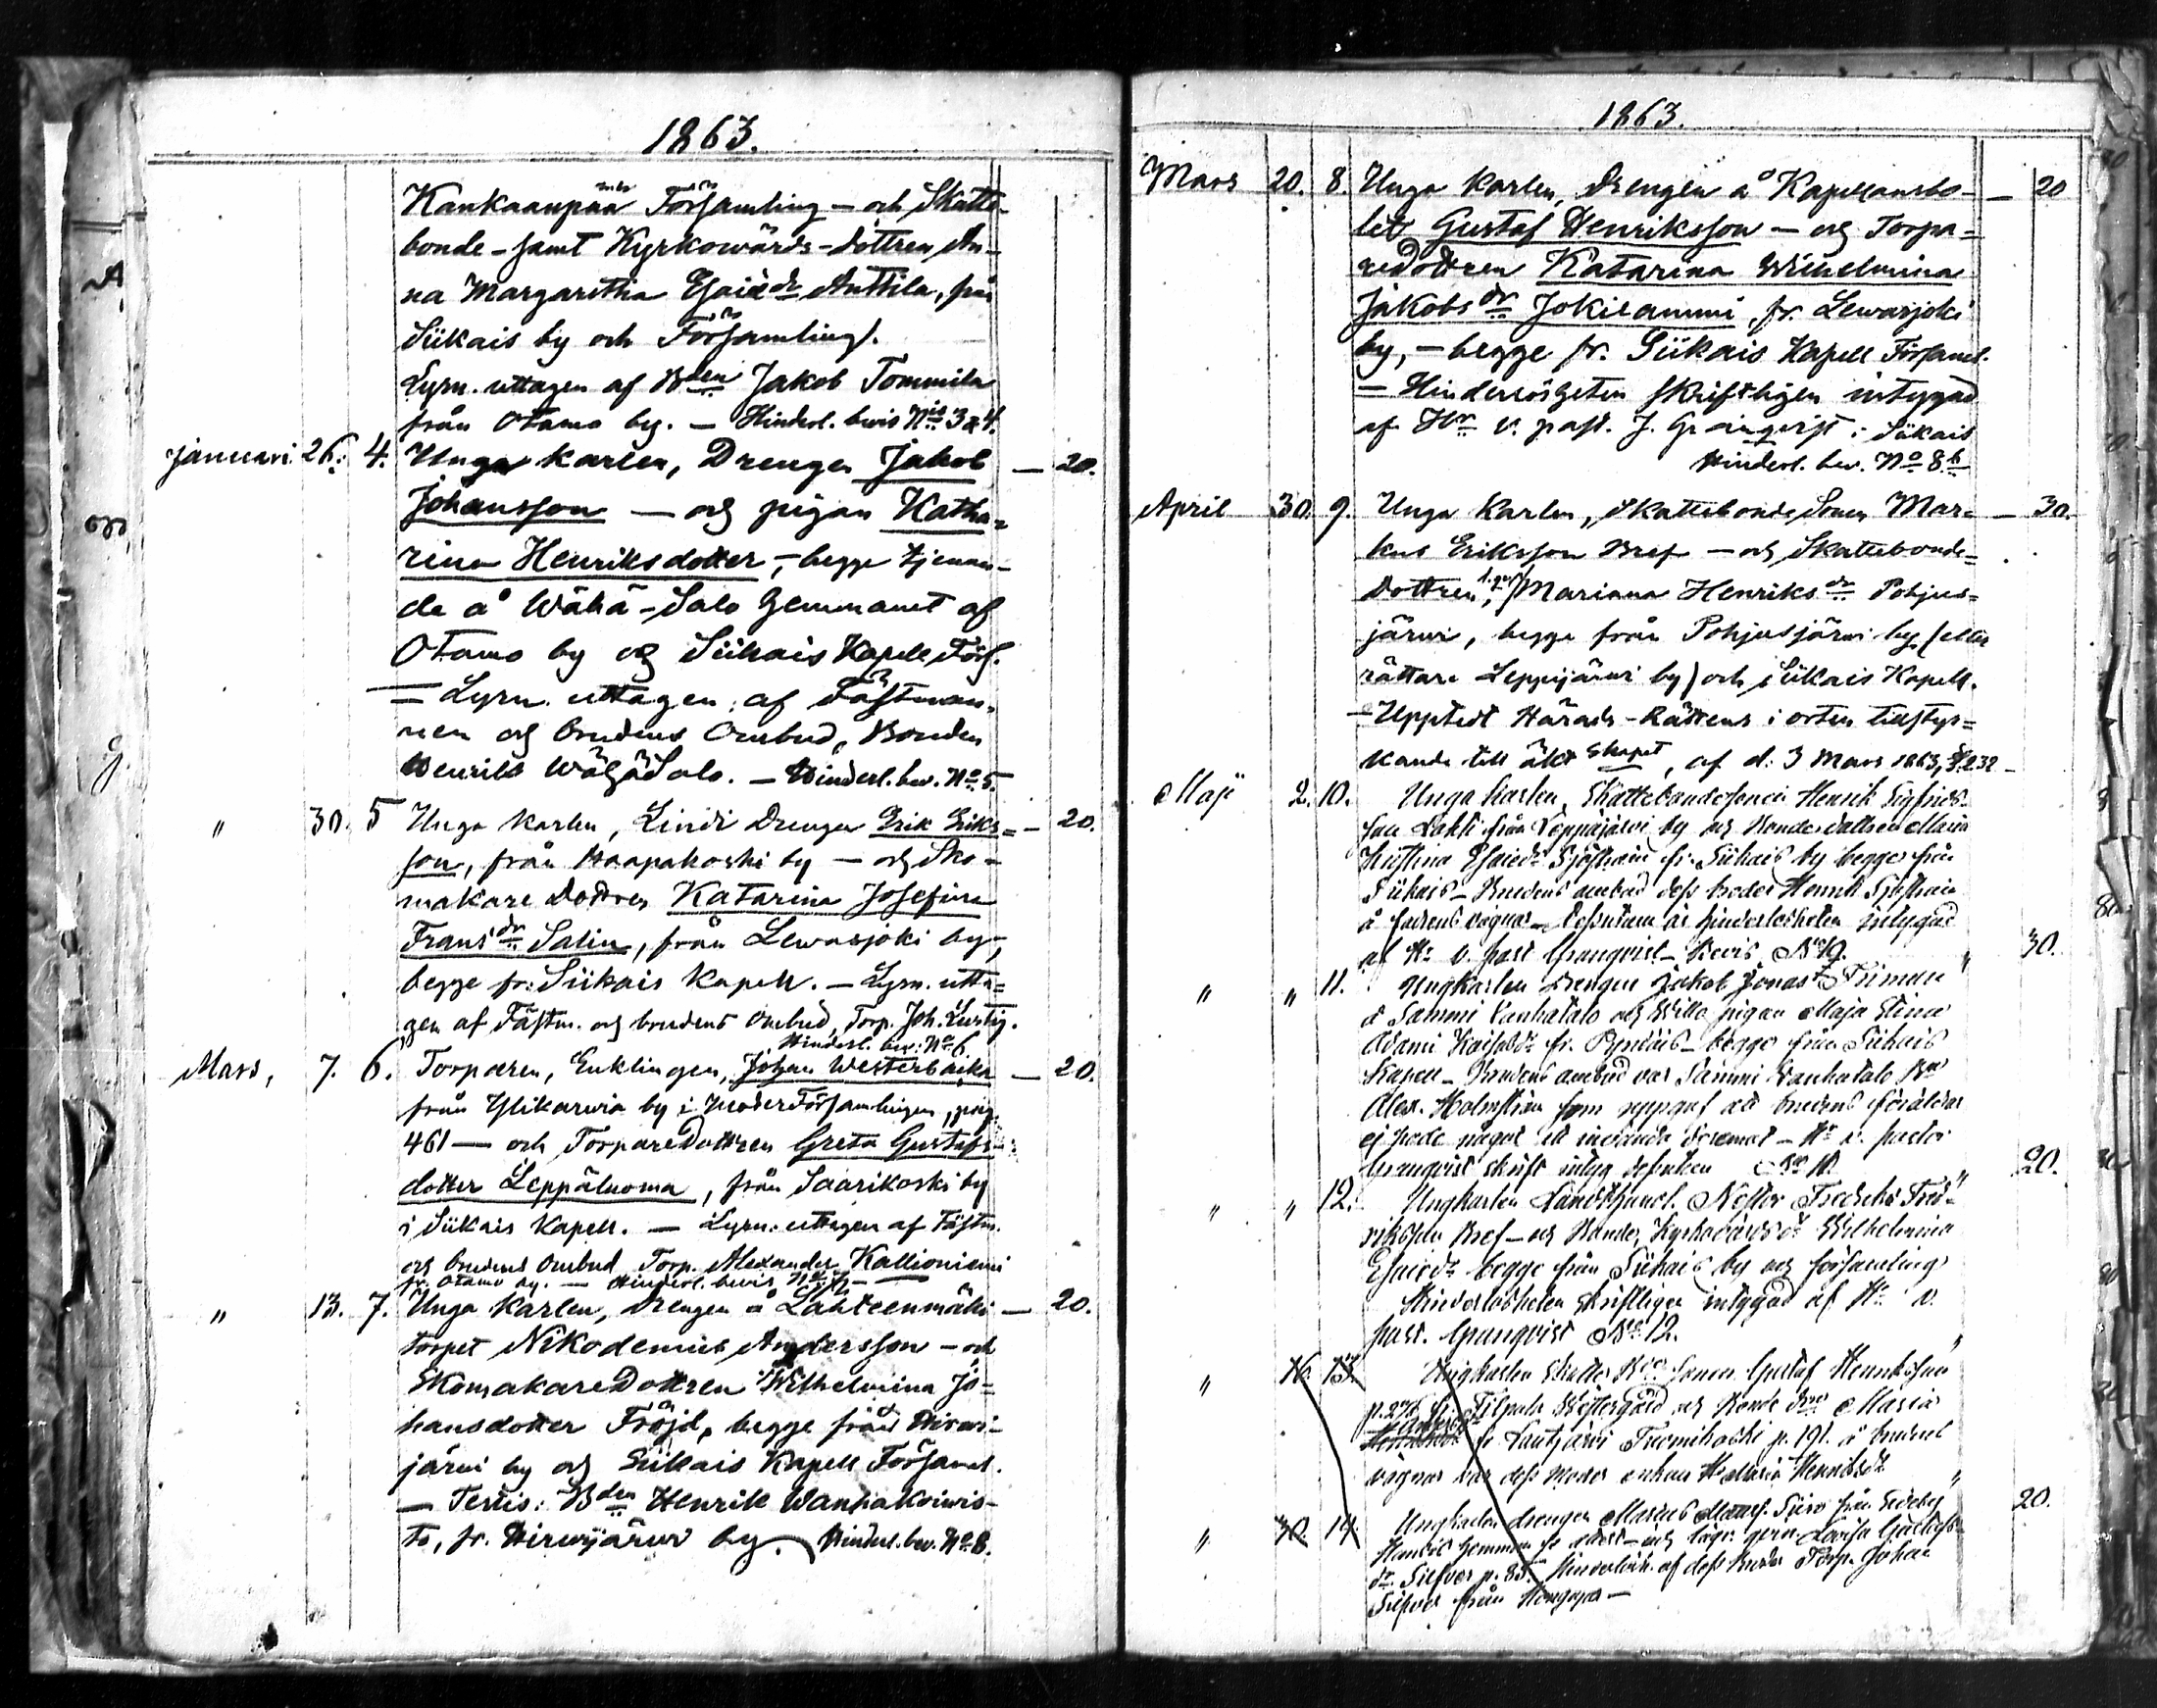 1863.
Kankaanpää Församling – och Skatte-
bonde – samt Kyrkowärds-dottren An-
na Margaretha Esaiædr Anttila, från
Siikais by och Församling.
Lysn. uttagen af Bden Jakob Tommila
från Otamo by. – Hinderl. bevis Nis 3 & 4.
Januari 26. 4. Unga karlen, Drengen Jakob — 20.
Johansson — och pigan Katha-
rina Henriksdotter, – begge tjenan-
de å Wähä-Salo Hemmanet af
Otamo by och Siikais Kapell Förs.
— Lysn. uttagen af Fästman-
nen och brudens Ombud, Bonden
Henrik WähäSalo. – Hinderl. bev. No 5.
" 30. 5 Unga karlen, Drengen Erik Eriks- — 20.
son, från Haapakoski by – och Sko-
makare Dottren Katarina Josefina
Fransdr Salin, från Lewasjoki by,
begge fr. Siikais Kapell. – Lysn. utta-
gen af Fästm. och brudens Ombud, Torp. Joh. Lustig.
Hinderl. bev: No 6.
Mars, 7. 6. Torparen, Enklingen, Johan Westerbacka — 20.
från Ylikarvia by i ModerFörsamlingen, pag.
461 — och TorpareDottren Greta Gustafs-
dotter Leppäluoma, från Saarikoski by
i Siikais Kapell. — Lysn. uttagen af Fästm.
och brudens Ombud Torp. Alexander Kallioniemi
fr. Otamo by. — Hinderl. bevis No 7.
" 13. 7. Unga Karlen, Drengen å Lähteenmäki — 20.
torpet Nikodemus Andersson – och
SkomakareDottren Wilhelmina Jo-
hansdotter Fröjd, begge från Hirwi-
järwi by och Siikais Kapell Församl.
— Testis: Bden Henrik Wanhakoiwis-
to, fr. Hirwijärwi by. Hinderl. bev. No 8.
1863.
Mars 20. 8. Unga karlen, Drengen å Kapellansbo- — 20
let Gustaf Henriksson — och Torpa-
redottren Katarina Wilhelmina
Jakobsdr Jokilammi, fr. Lewasjoki
by, – begge fr. Siikais Kapell Församl.
— Hinderlösheten skriftligen intygad
af Hr v. past. J. Granqvist i Siikais
Hinderl. bev. No 8.b
April 30. 9. Unga Karlen, SkattebondeSonen Mar- — 30.
kus Eriksson Bref — och Skattebonde-
Dottren, Mariana Henriksdr Pohjus-
järwi, begge från Pohjusjärwi by (eller
rättare Leppijärwi by) och Siikais Kapell.
— Upptedt Härads-Rättens i orten tillstyr-
kande till äktskapet, af d. 3 Mars 1863, § 232
Maji 2. 10. Unga karlen, Skattebondesonen Henrik Sigfrids-
son Lahti från Leppäjärvi by och Bondedottren Maria
Kristina Esaiedr Sjöström fr. Siikais by begge från
Siikais – Brudens ombud dess broder Henrik Sjöström
å fadrens vägnar – dessutom är hinderlösheten intygad
af Hr v. past Granqvist – bevis No 10. " 30.
" " 11. Ungkarlen Drengen Jakob Jonass Friman
å Sammi Vanhatalo och pigan Maja Stina
Adami fr. – begge från Siikais
Kapell – Brudens ombud var Sammi Vanhatalo Bde
Alex. Holmström som uppgaf att brudens föräldrar
ej hade något att invända deremot – Hr v. pastor
Granqvist skrift. intyg dessutom No 11. " 20.
" " 12. Ungkarlen Landthandl. Nestor Fredrik Fred-
riksson Bref – och Bonde, Kyrkovärdsdr Wilhelmina
Esaiedr begge från Siikais by och församling
Hinderlösheten skriftligen intygad af Hr v.
past. Granqvist No 12.
" 16. 13. Ungkarlen Skatte Bde Sonen Gustaf Henriksson "
p. 276 fr. Filpula Westergård och Bonde Maria
fr. Lautjärvi Tuomikoski p. 191. å brudens
vägnar var dess moder enkan Maria Henriksdr
" 30. 14. Ungkarlen drengen Marcus från Sideby " 20.
Hemman Lovisa Gustafs-
dr Silfver p. 85. Hinderlösh. af dess broder Torp. Johan
Silfver från